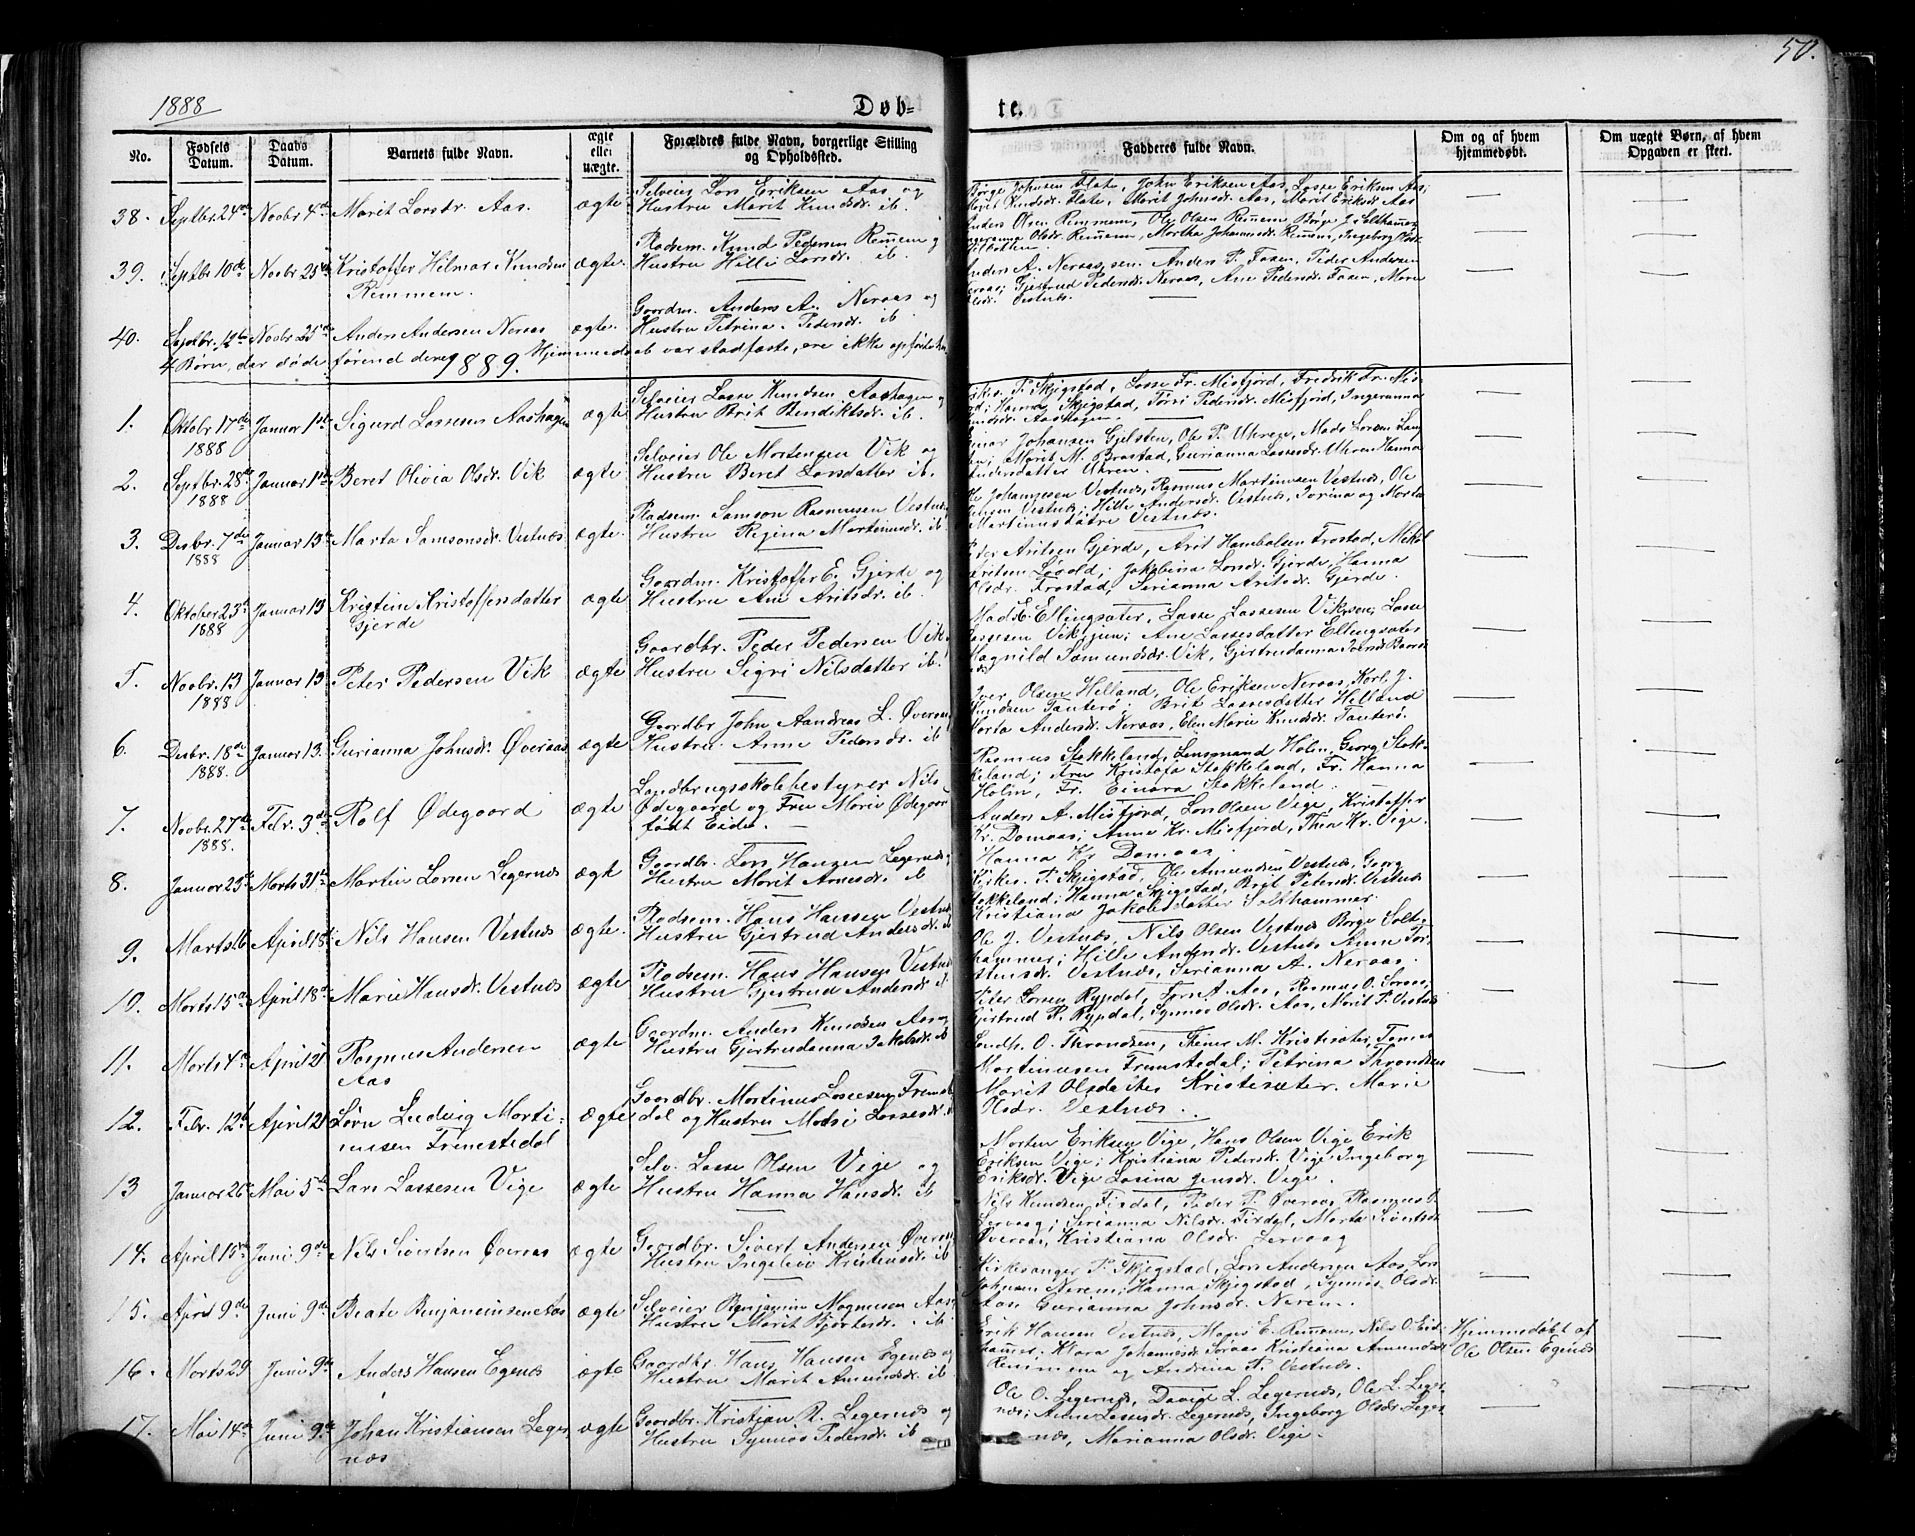 50.
1888
Døb-
te.
No.
Fødsels Datum.
Daabs Datum.
Barnets fulde Navn.
ægte eller uægte.
Forældres fulde Navn, borgerlige Stilling og Opholdssted.
Faddernes fulde Navn.
Om og af hvem hjemmedøbt.
Om uægte Børn, af hvem Opgaven er skeet.
38. Septbr. 24de Novbr 4de Marit Larsdr. Aas. ægte
Selveier Lars Eriksen Aas og
Hustru Marit Knudsdr. ib.
Børge Johnsen Flate, John Eriksen Aas, Lasse Eriksen Aas;
Marit Knudsdr. Flate, Marit Johnsdr. Aas, Marit Eriksdr. Aas
39. Septbr 10de Novbr 25de Kristoffer Hilmar Knudsen ægte.
Remmem.
Pladsm. Knud Pedersen Remem og
Hustru Hilli Larsdr. ib.
Anders Olsen Remmem, Ole Olsen Remem, Børge J. Salthammer
Olsdr. Remmem, Martha Johannesdr. Remem, Ingeborg Olsdr.
40. Septbr. 12te Novbr 25de Anders Andersen Neraas ægte.
Gaardm. Anders A. Neraas og
Hustru Petrina Pedersdr. ib.
Anders A. Neraas sen. Anders P. Foxen, Peder Andersen
Neraas; Gjertrud Pedersdr. Neraas, Ane Pedersdr. Foxen, Maren
Olsdr. Vestnæs.
4 Børn, der døde førend deres Hjemmedaab var stadfæste, ere ikke opførte her
1889.
1. Oktobr 17de Januar 1ste Sigurd Lassesen Aashagen ægte
1888
Selveier Lasse Knudsen Aashagen og
Hustru Brit Bendiktsdr. ib.
Kirkes. P. Skjegstad, Lasse Fr. Misfjord, Fredrik Fr. Mis-
fjord; Hanna Skjegstad, Pedersdr. Misfjord, Ingeranna
Knudsdr. Aashagen.
2. Septbr. 28de Januar 1ste Beret Olivia Olsdr. Vik ægte
1888
Selveier Ole Mortensen Vik og
Hustru Beret Larsdatter ib.
Johansen Gjelsten, Ole P. Uhren, Mads Larsen
Marit M. Brastad, Gurianna Lassesdr. Uhren Hanna
Andersdatter Uhren.
3. Desbr. 7de Januar 13de Marta Samsonsdr. Vestnæs ægte.
1888
Pladsm. Samson Rasmussen Vestnæs
Hustru Regina Martinusdr. ib.
Ole Johannesen Vestnæs, Rasmus Martinusen Vestnæs, Ole
Jensen Vestnæs; Hille Andersdr. Vestnæs, Jorina og Marta
Martinusdøtre Vestnæs.
4. Oktober 23de Januar 13 Kristine Kristoffersdatter ægte
1888 Gjerde
Gaardm. Kristoffer E. Gjerde og
Hustru Ane Aritsdr. ib.
Peder Aritsen Gjerde, Arit Frostad, Mikal
Aritsen Løvold; Jakobina Larsdr. Gjerde, Hanna
Olsdr. Frostad, Serianna Aritsdr. Gjerde.
5. Novbr. 13 Januar 13 Peter Pedersen Vik ægte
1888
Gaardbr. Peder Pedersen Vik
Hustru Sigri Nilsdatter ib.
Mads E. Ellingsæter, Lasse Lassesen Lasse
Lassesen Ane Lassesdatter Ellingsæter
Magnild Samundsdr. Vik, Gjertrudanna
6. Desbr. 18de Januar 13. Gurianna Johnsdr. Øveraas ægte
1888.
Gaardbr John Aandreas L. Øveraas
Hustru Anne Pedersdr. ib
Iver Olsen Helland, Ole Eriksen Neraas, Karl J.
Knudsen Tauterø; Brit Lassesdatter Helland
Marta Andersdr. Neraas, Elen Marie Knudsdr. Tauterø.
7. Novbr. 27de Febr. 3de Rolf Ødegaard ægte
1888.
Landbrugsskolebestyrer Nils
Ødegaard og Fru Marie Ødegaard
født Eide.
Rasmus Stokkeland, Lensmand Holm, Georg Stok-
keland; Fru Kristofa Stokkeland, Fr. Hanna
Holm, Fr. Einara Stokkeland.
8. Januar 23de Marts 31te Martin Larsen Legernæs ægte
Gaardbr. Lars Hansen Legernæs
Hustru Marit Arnesdr. ib
Anders A. Misfjord, Lars Olsen Vige, Kristoffer
Kr. Domaas; Anne Kr. Misfjord, Thea Kr. Vige.
Hanna Kr. Domaas.
9. Marts 16 April 18de Nils Hansen Vestnæs ægte.
Pladsem. Hans Hansen Vestnæs
Hustru Gjertrud Andersdr. ib
Kirkes. P. Skjegstad, Ole Amundsen Vestnæs, Georg
Stokkeland; Hanna Skjegstad, Brit Petersdr. Vestnæs
Kristiana Jakobsdatter Salthammer.
10. Marts 15de April 18de Marie Hansdr. Vestnæs ægte
Pladsem. Hans Hansen Vestnæs
Hustru Gjertrud Andersdr. ib
Ole J. Vestnæs, Nils Olsen Vestnæs Børge Salt-
hammer; Hille Andersdr. Vestnæs Anne Tor-
stensdr. Vestnæs, Serianna A. Neraas.
11. Marts 4de April 21 Rasmus Andersen ægte
Aas
Gaardm. Anders Knudsen Aas og
Hustru Gjertrudanna Jakobsdr. ib
Peter Larsen Rypdal, Lars A. Aas, Rasmus O. Soraas;
Gjertrud P. Rypdal, Synnøs Olsdr. Aas, Marit P. Vestnæs
12. Febr. 12te April 21 Søren Ludvig Marti- ægte
nusen Fremstedal
Gaardbr. Martinus Lassesen Fremste-
dal og Hustru Massi Lassesdr. ib
Landh. O. Throndsen, Steiner M. Kristisæter, Tomas
Martinusen Fremstedal; Petrina Throndsen
Marit Olsdatter Kristisæter. Marie
Olsdr. Vestnæs.
13 Januar 26de Mai 5te Lars Lassesen Vige ægte
Selv. Lasse Olsen Vige og
Hustru Hanna Hansdr. ib
Morten Eriksen Vige, Hans Olsen Vige Erik
Eriksen Vige; Kristiana Pedersdr. Vige Ingeborg
Eriksdr. Vige Lasina Jensdr. Vige.
14. April 15de Juni 9de Nils Sivertsen Øveraas ægte
Gaardbr. Sivert Andersen Øveraas
Hustru Ingeleiv Kristensdr. ib
Nils Knudsen Firdal, Peder P. Øveraas, Rasmus O.
Lervaag; Serianna Nilsdr. Firdal, Marta Sivertsdr
Øveraas, Kristiana Olsdr. Lervaag
15. April 9de Juni 9de Beate Benjaminsen Aas ægte
Selveier Benjamin Magnusen Aas
Hustru Marit Bjørtesdr. ib.
Kirkesanger P. Skjegstad, Lars Andersen Aas, Lars
Johnsen Nerem; Hanna Skjegstad, Synnøs Olsdr.
Aas Gurianna Johnsdr. Nerem.
16. Marts 29 Juni 9de Anders Hansen Egenæs ægte
Gaardbr. Hans Hansen Egenæs og
Hustru Marit Amundsdr. ib
Erik Hansen Vestnæs, Mons E. Remem, Nils O. Eid-
hammer; Klara Johannesdr. Soraas Kristiana Amundsdr
Remmem og Andrina P. Vestnæs.
Hjemmedøbt af
Ole Olsen Egenæs
17. Mai 14de Juni 9de Johan Kristiansen Leger- ægte
næs
Gaardbr. Kristian R. Legernæs og
Hustru Synnøs Pedersdr. ib
Ole O. Legernæs, David L. Legernæs, Ole L. Leger-
næs; Anne Lassesdr. Legernæs, Ingeborg Olsdr. Leger-
næs, Marianna Olsdr. Vige.